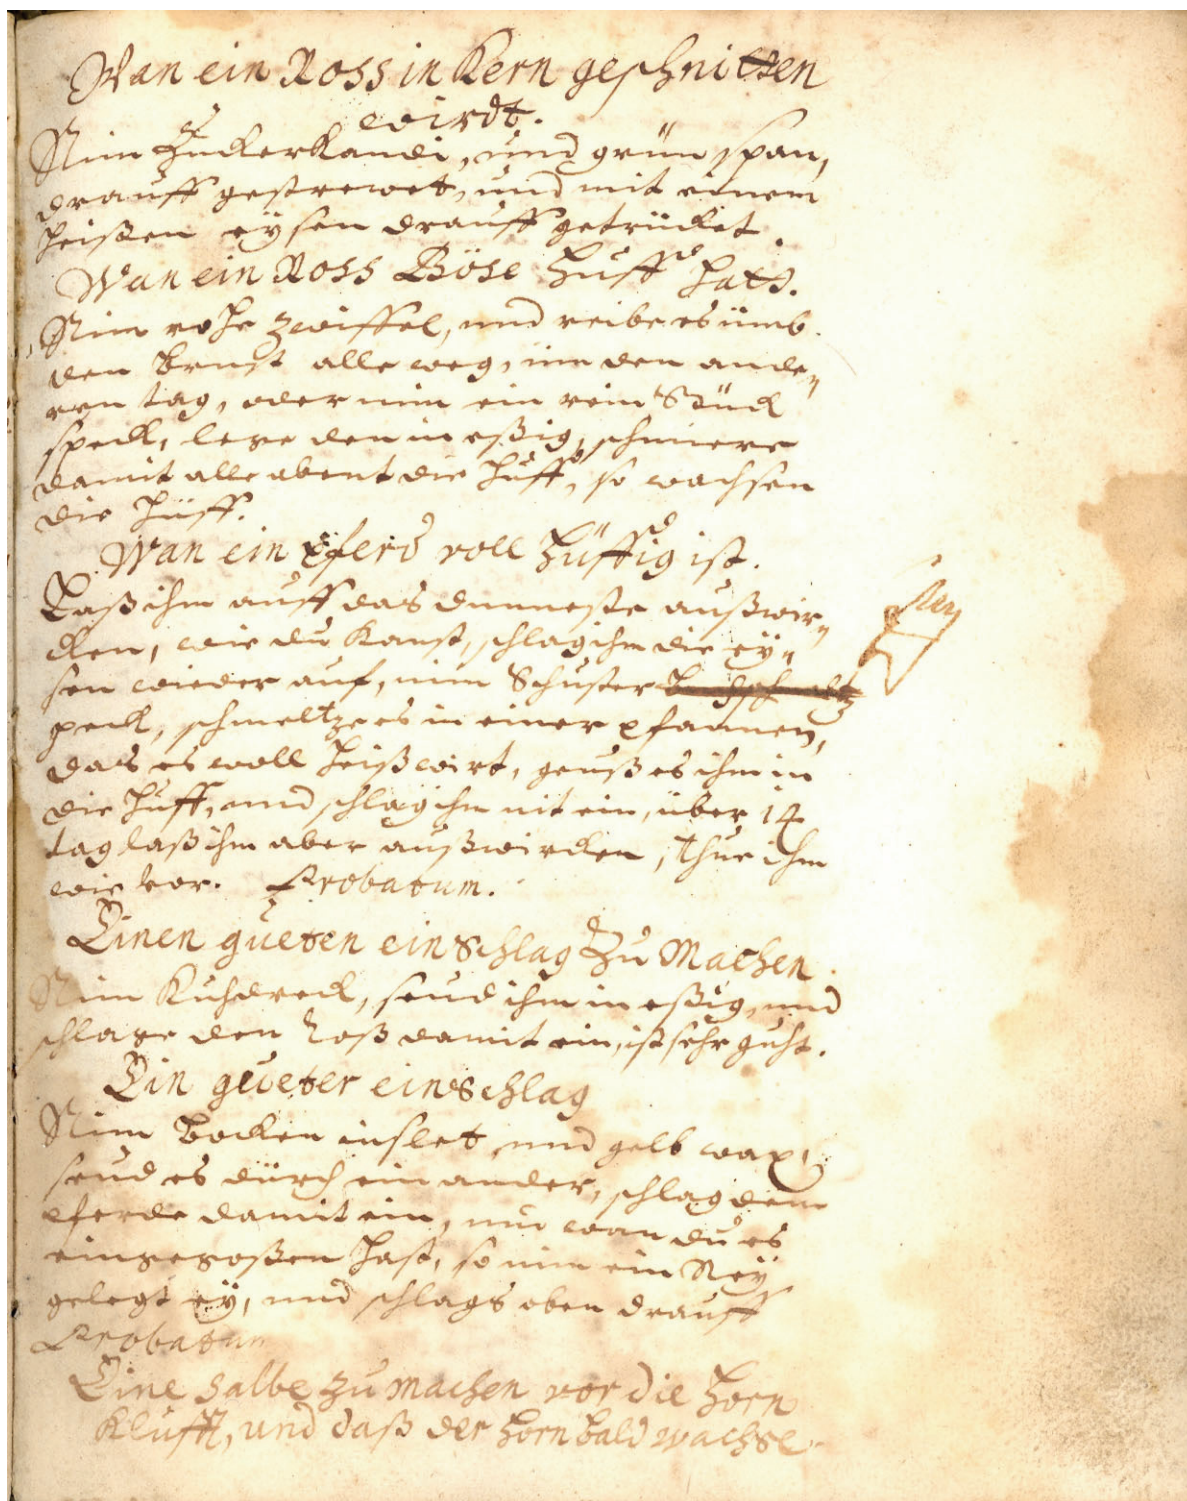 Wan ein Ross in Kern geschnitten
wirdt.
Nim Zuckerkandi, und grün span,
drauff gestrewet, und mit einem
heißen eÿsen drauff getrücket.
Wan ein Ross Böse Huff hatt.
Nim rohe zwiffel, und reibe es ümb
den alle weg, üm den ande„
ren tag, oder nim ein rein Stück
speck, lege den in eßig, schmiere
damit alle abent die Huff, so wachsen
die Hüff.
Wan ein Pferd voll Hüffig ist.
Laß ihm auff das dunneste außwir„
cken, wie du kanst, schlag ihm die eÿ„
sen wieder auf, nim Schuster
peck, schmeltze es in einer pfannen,
das es woll heiß wirt, geuß es ihm in
die Huff, und schlag ihm nit ein, über 14
tag laß ihm aber außwircken, thue ihm
wie vor. Probatum.
Einen gueten einschlag Zu Machen
Nim Kuhdreck, seud ihm in eßig, und
schlage den Roß damit ein, ist sehr guht.
Ein gueter einschlag
Nim Bocken inslet und gelb wax,
seud es dürch ein ander, schlag dem
pferde damit ein, nur wan du es
eingegoßen hast, so nim ein Neÿ
gelegt eÿ, und schlags oben drauff
Probatum
Eine Salbe zu machen vor die Horn
Klufft, und daß der Horn bald wachse